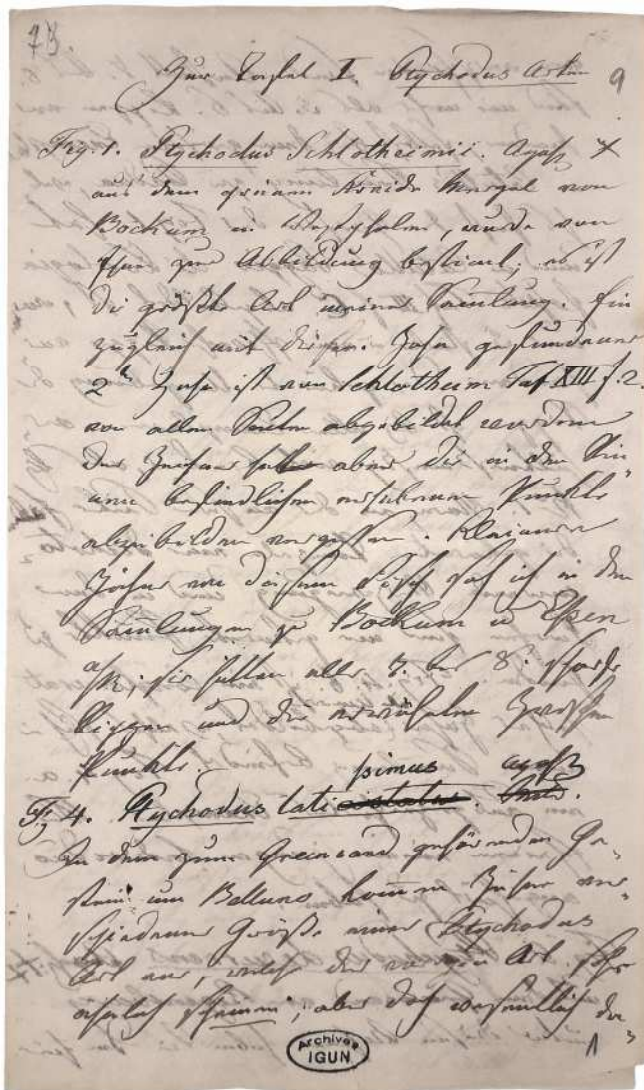 75
9
Zur Tafel I. Ptychodus Arten
Fig. 1. Ptychodus Schlotheimii. Agass
aus dem grünen Kreide Mergel von
Bockum in Westphalen, wurde von
Ihnen zur Abbildung bestimt; es ist
die größte Art meiner Samlung. Ein
zugleich mit diesem Zahn gefundener
2r Zahn ist von Schlotheim Taf XIII f. 2.
von allen Seiten abgebildet worden
der Zeichner aber die in den
befindlichen erhabenen Punkte
abzubilden vergessen. Kleinere
Zähne von diesem Fisch sah ich in den
Samlungen zu Bockum u Essen
sie hatten alle 7. bis 8. scharfe
und die erwähnten
Punkte.
Fig 4. Ptychodus latissimus Agass
In dem zum Greensand gehörenden Ge-
stein um Belluno komen Zähne ver-
schiedener Größe einer Ptychodus
Art vor, welche der vorigen Art sehr
ähnlich scheinen; aber doch wesentlich da-
1
Archives
IGUN